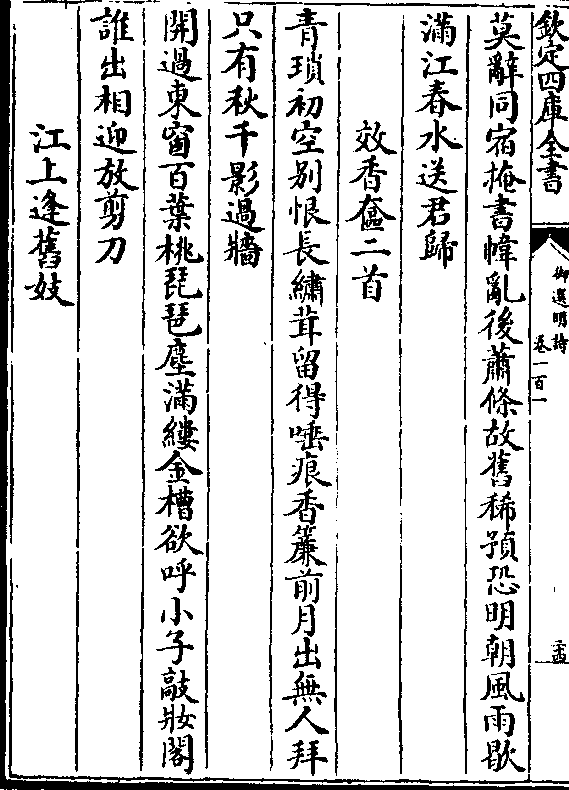 欽定四庫全書
御選明詩
卷一百一
莫辭同宿掩書幃亂後蕭條故舊稀預恐明朝風雨歇
滿江春水送君歸
效香奩二首
青瑣初空别恨長繡茸留得唾痕香簾前月出無人拜
只有秋千影過牆
開過東窗百葉桃琵琶塵滿縷金槽欲呼小子敲妝閣
誰出相迎放剪刀
江上逢舊妓